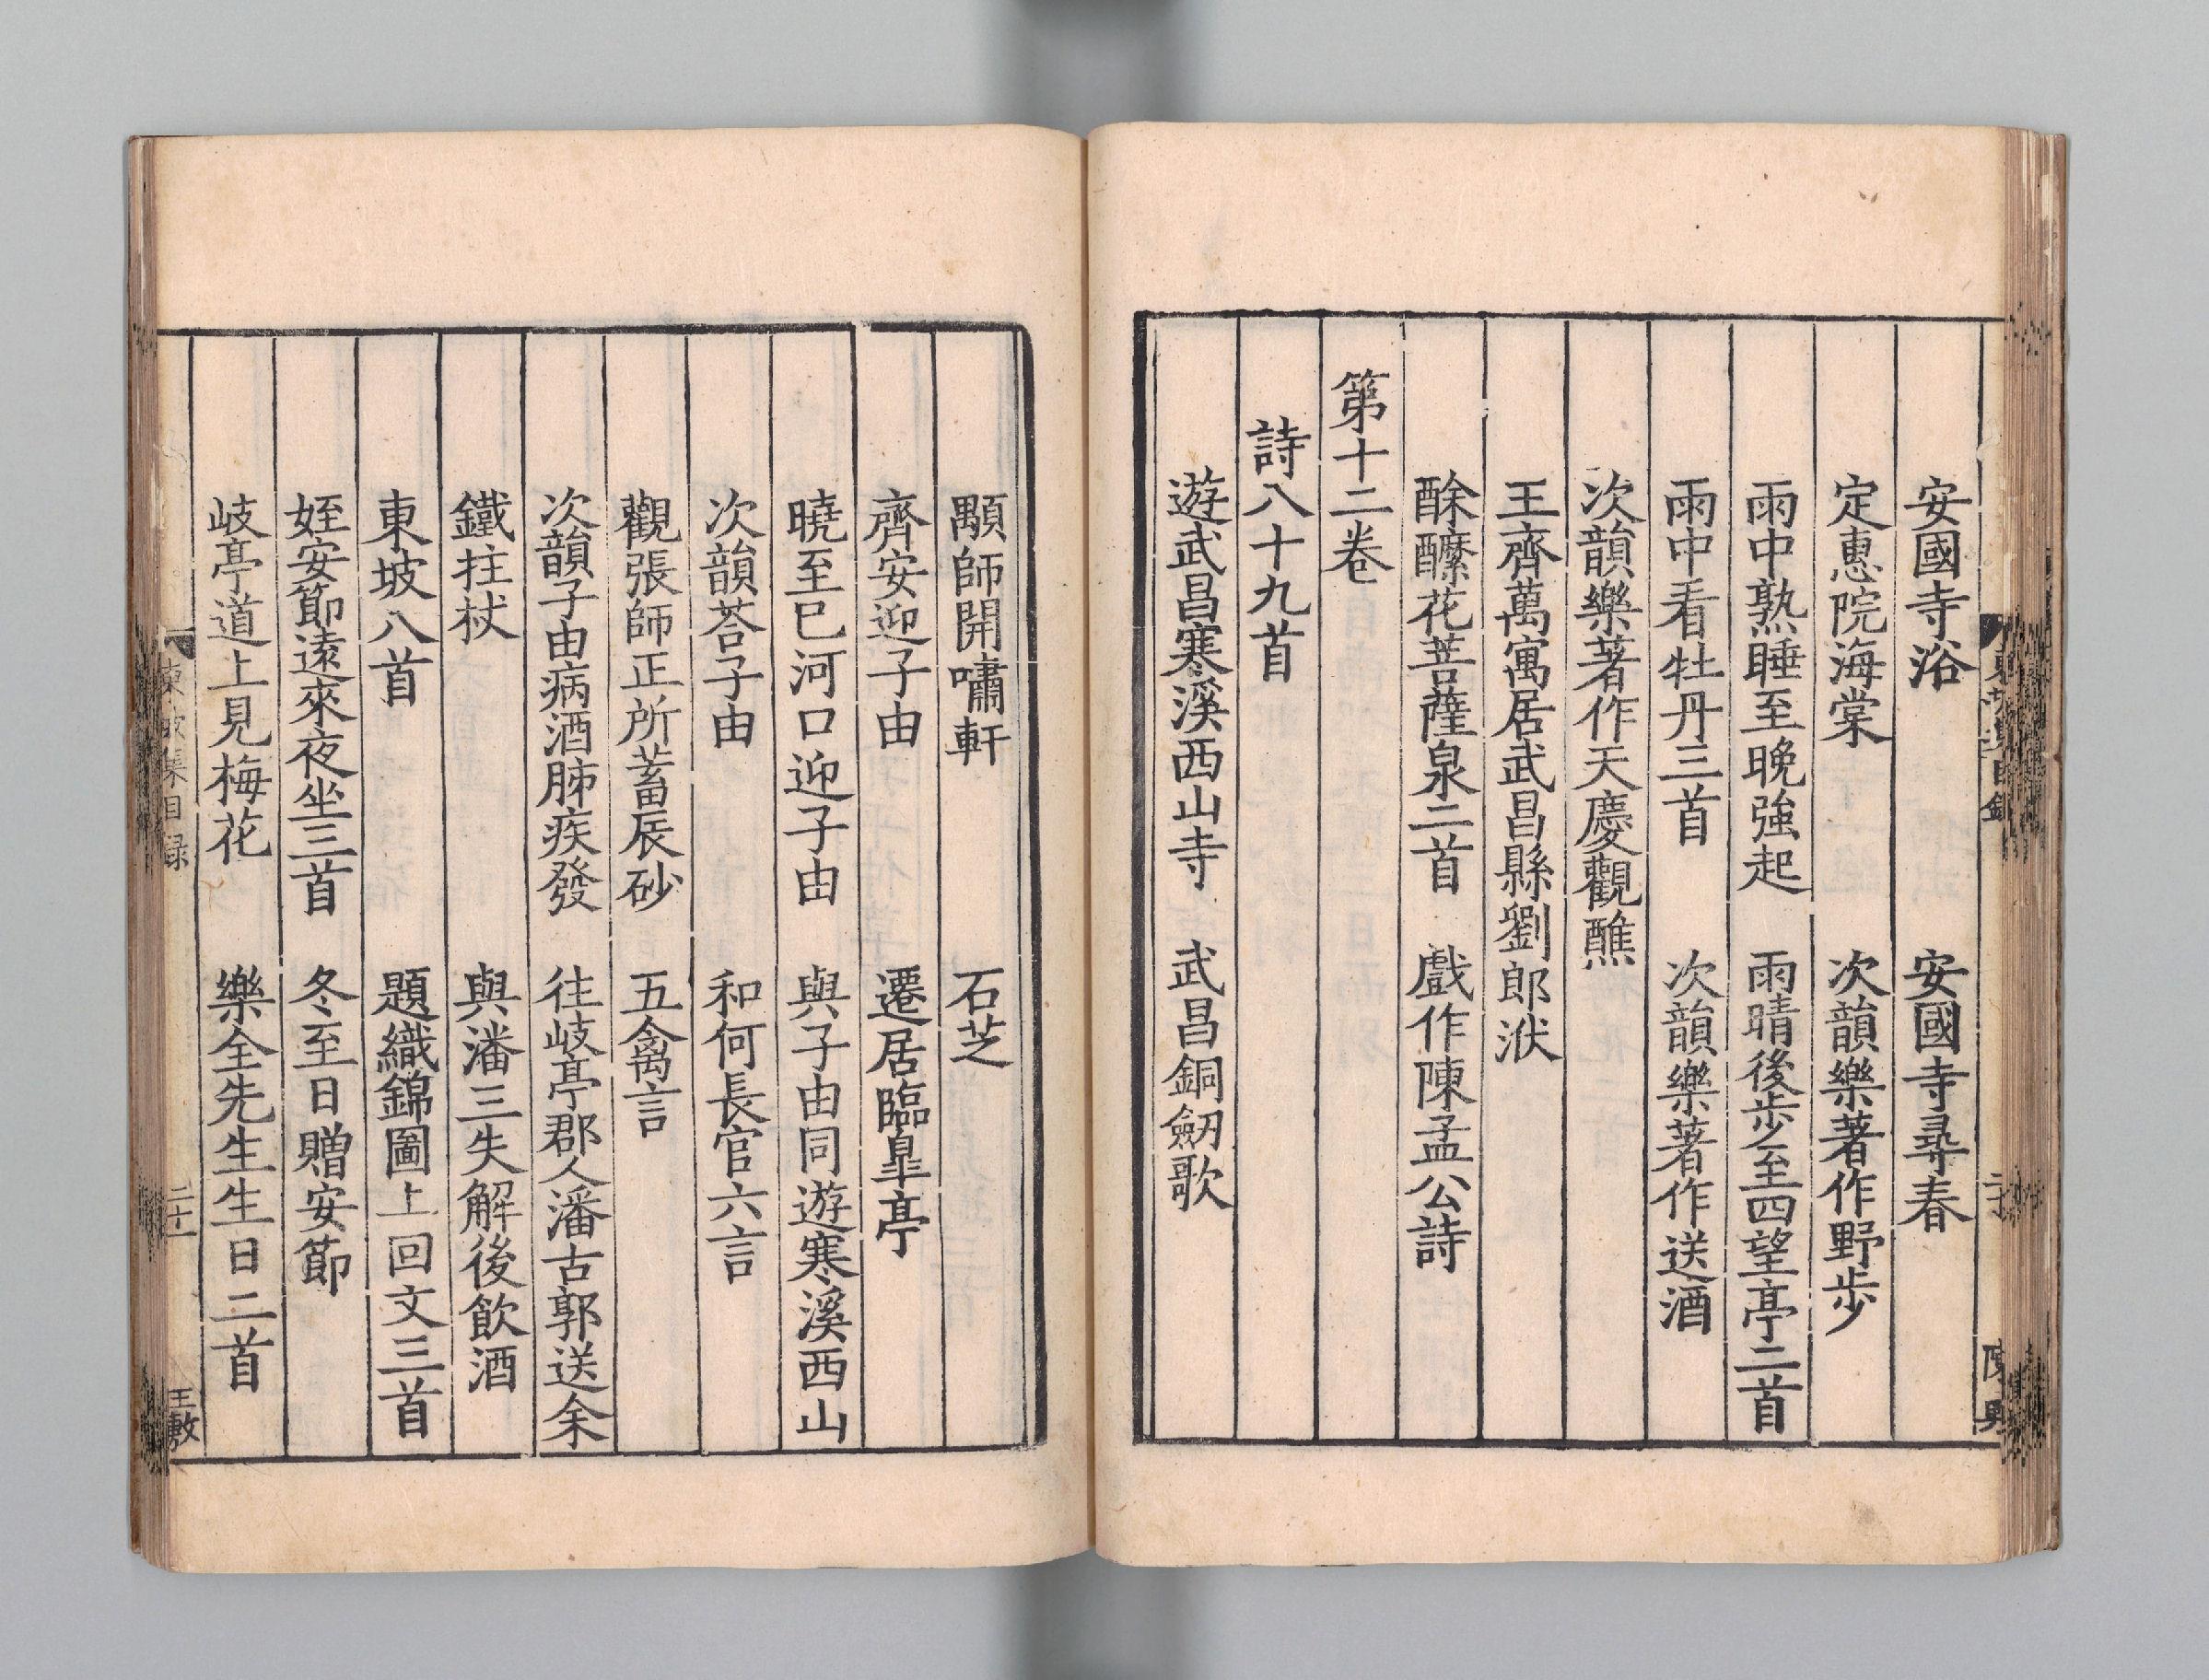 安國寺浴　安國寺尋春
定惠院海棠　次韻樂著作野步
雨中熟睡至晚強起　雨晴後步至四望亭二首
雨中看牡丹三首　次韻樂著作送酒
次韻樂著作天慶觀醮
王齊萬寓居武昌縣劉郎洑
酴醿花菩薩泉二首　戲作陳孟公詩
第十二卷
詩八十九首
遊武昌寒溪西山寺　武昌銅劒歌
顒師開嘯軒　石芝
齊安迎子由　遷居臨臯亭
曉至巴河口迎子由　與子由同遊寒溪西山
次韻荅子由　和何長官六言
觀張師正所蓄辰砂　五禽言
次韻子由病酒肺疾發　往岐亭郡人潘古郭送余
鐵拄杖　與潘三失解後飲酒
東坡八首　題織錦圖上回文三首
姪安節遠來夜坐三首　冬至日贈安節
岐亭道上見梅花　樂全先生生日二首
東坡集目録　二十一　王敷